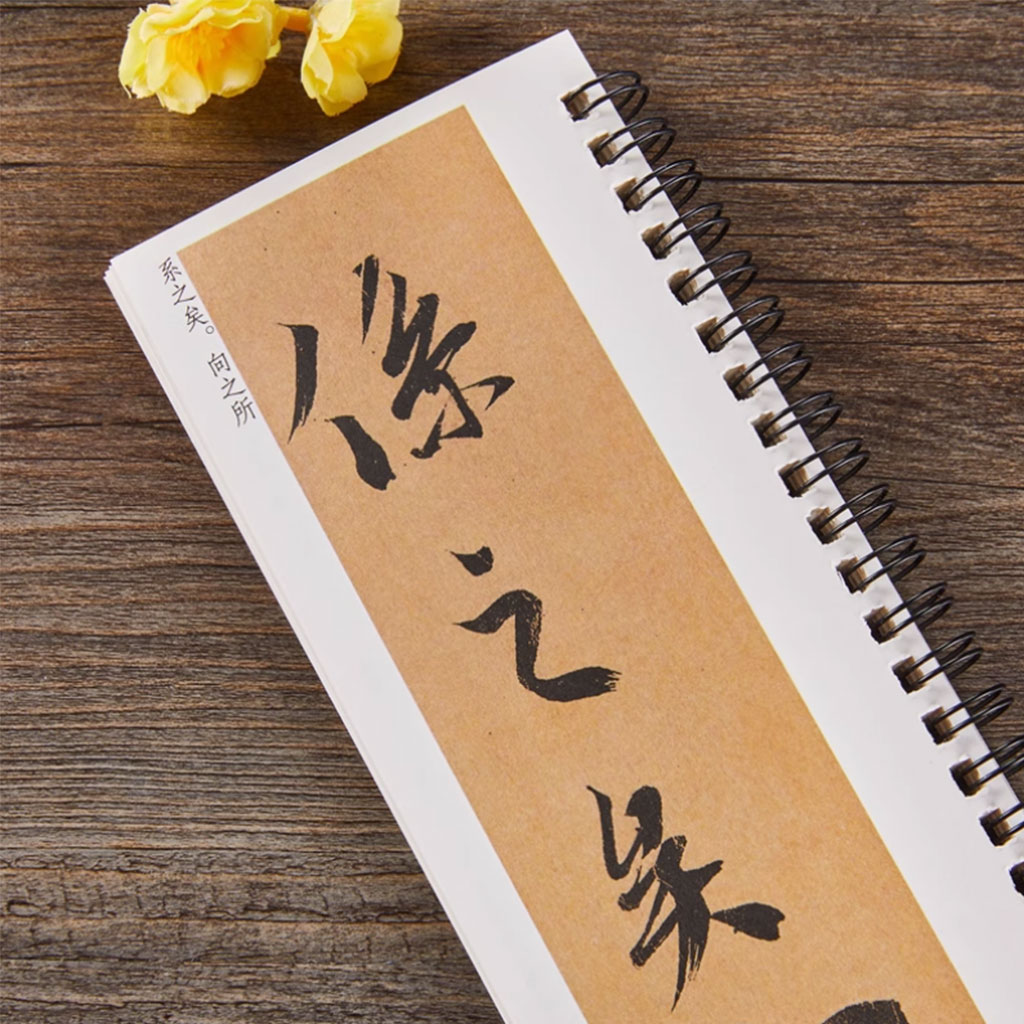 係之矣
系之矣。向之所